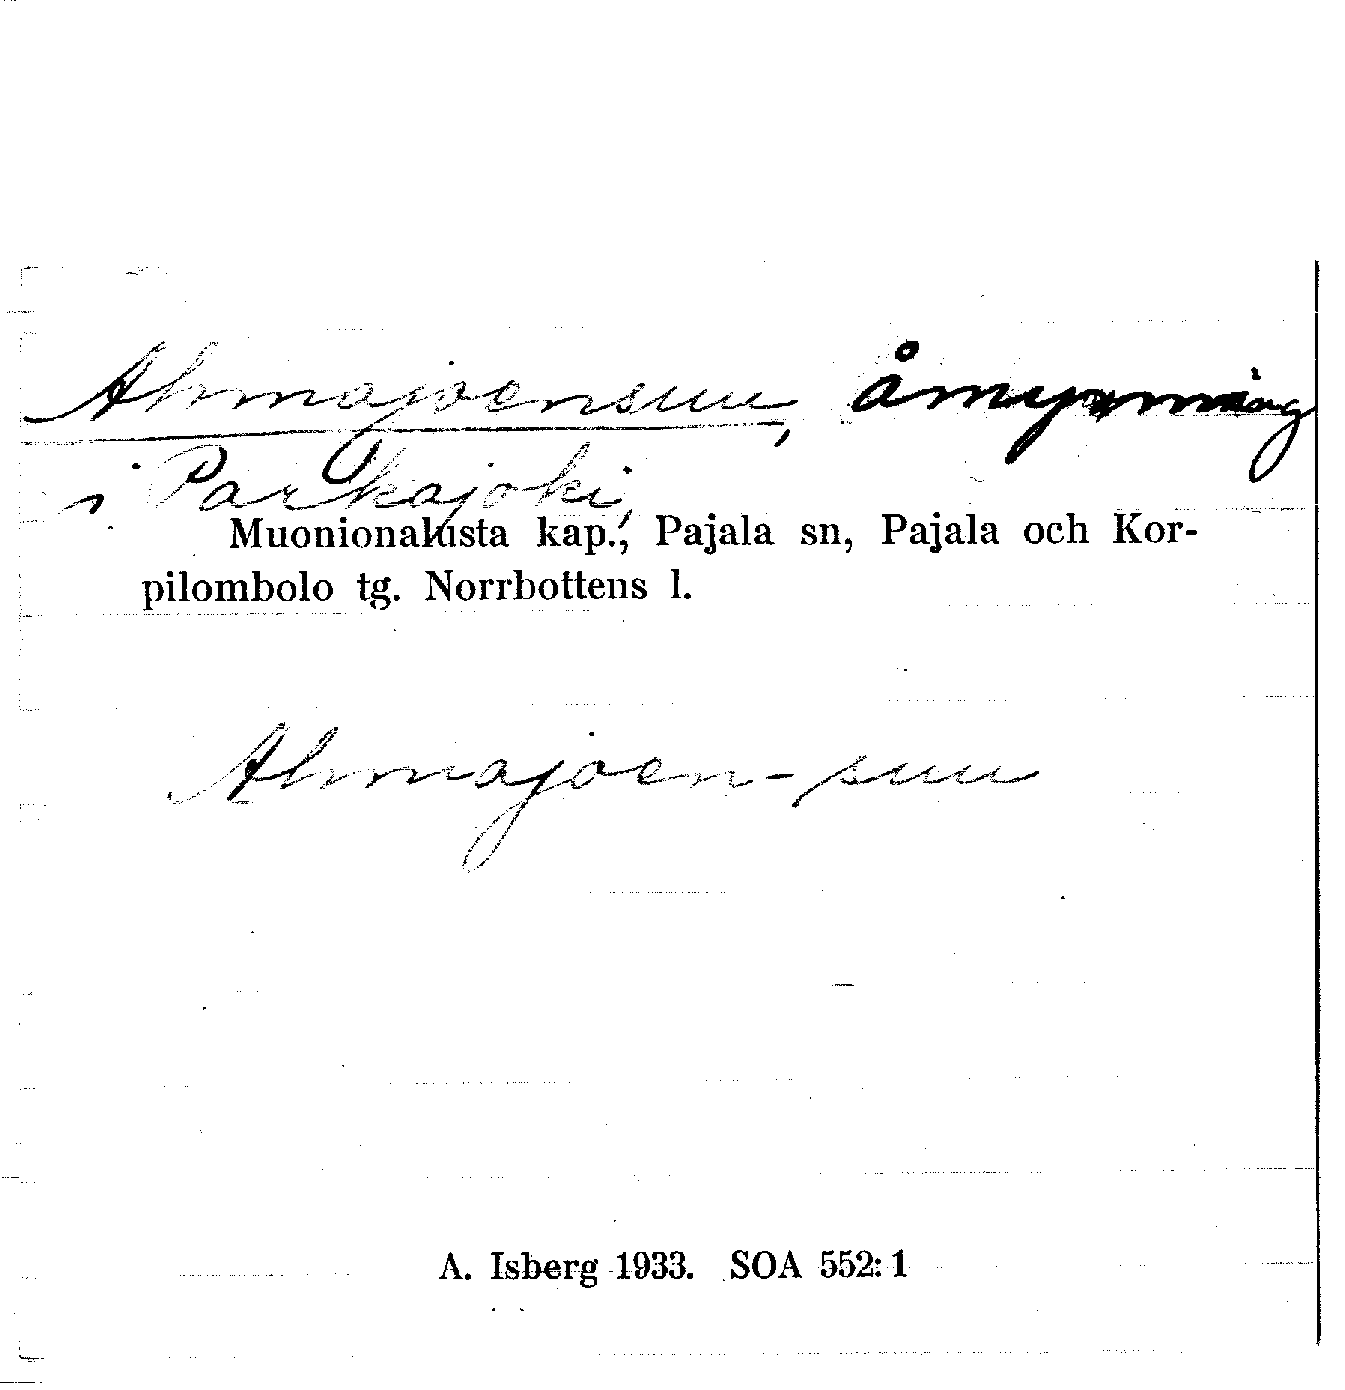 Ahmajoensuu, åmynning
i Parkajoki,
Muonionalusta kap., Pajala sn, Pajala och Kor-
pilombolo tg. Norrbottens l.
Ahmajoen-suu
A. Isberg 1933. SOA 552:1